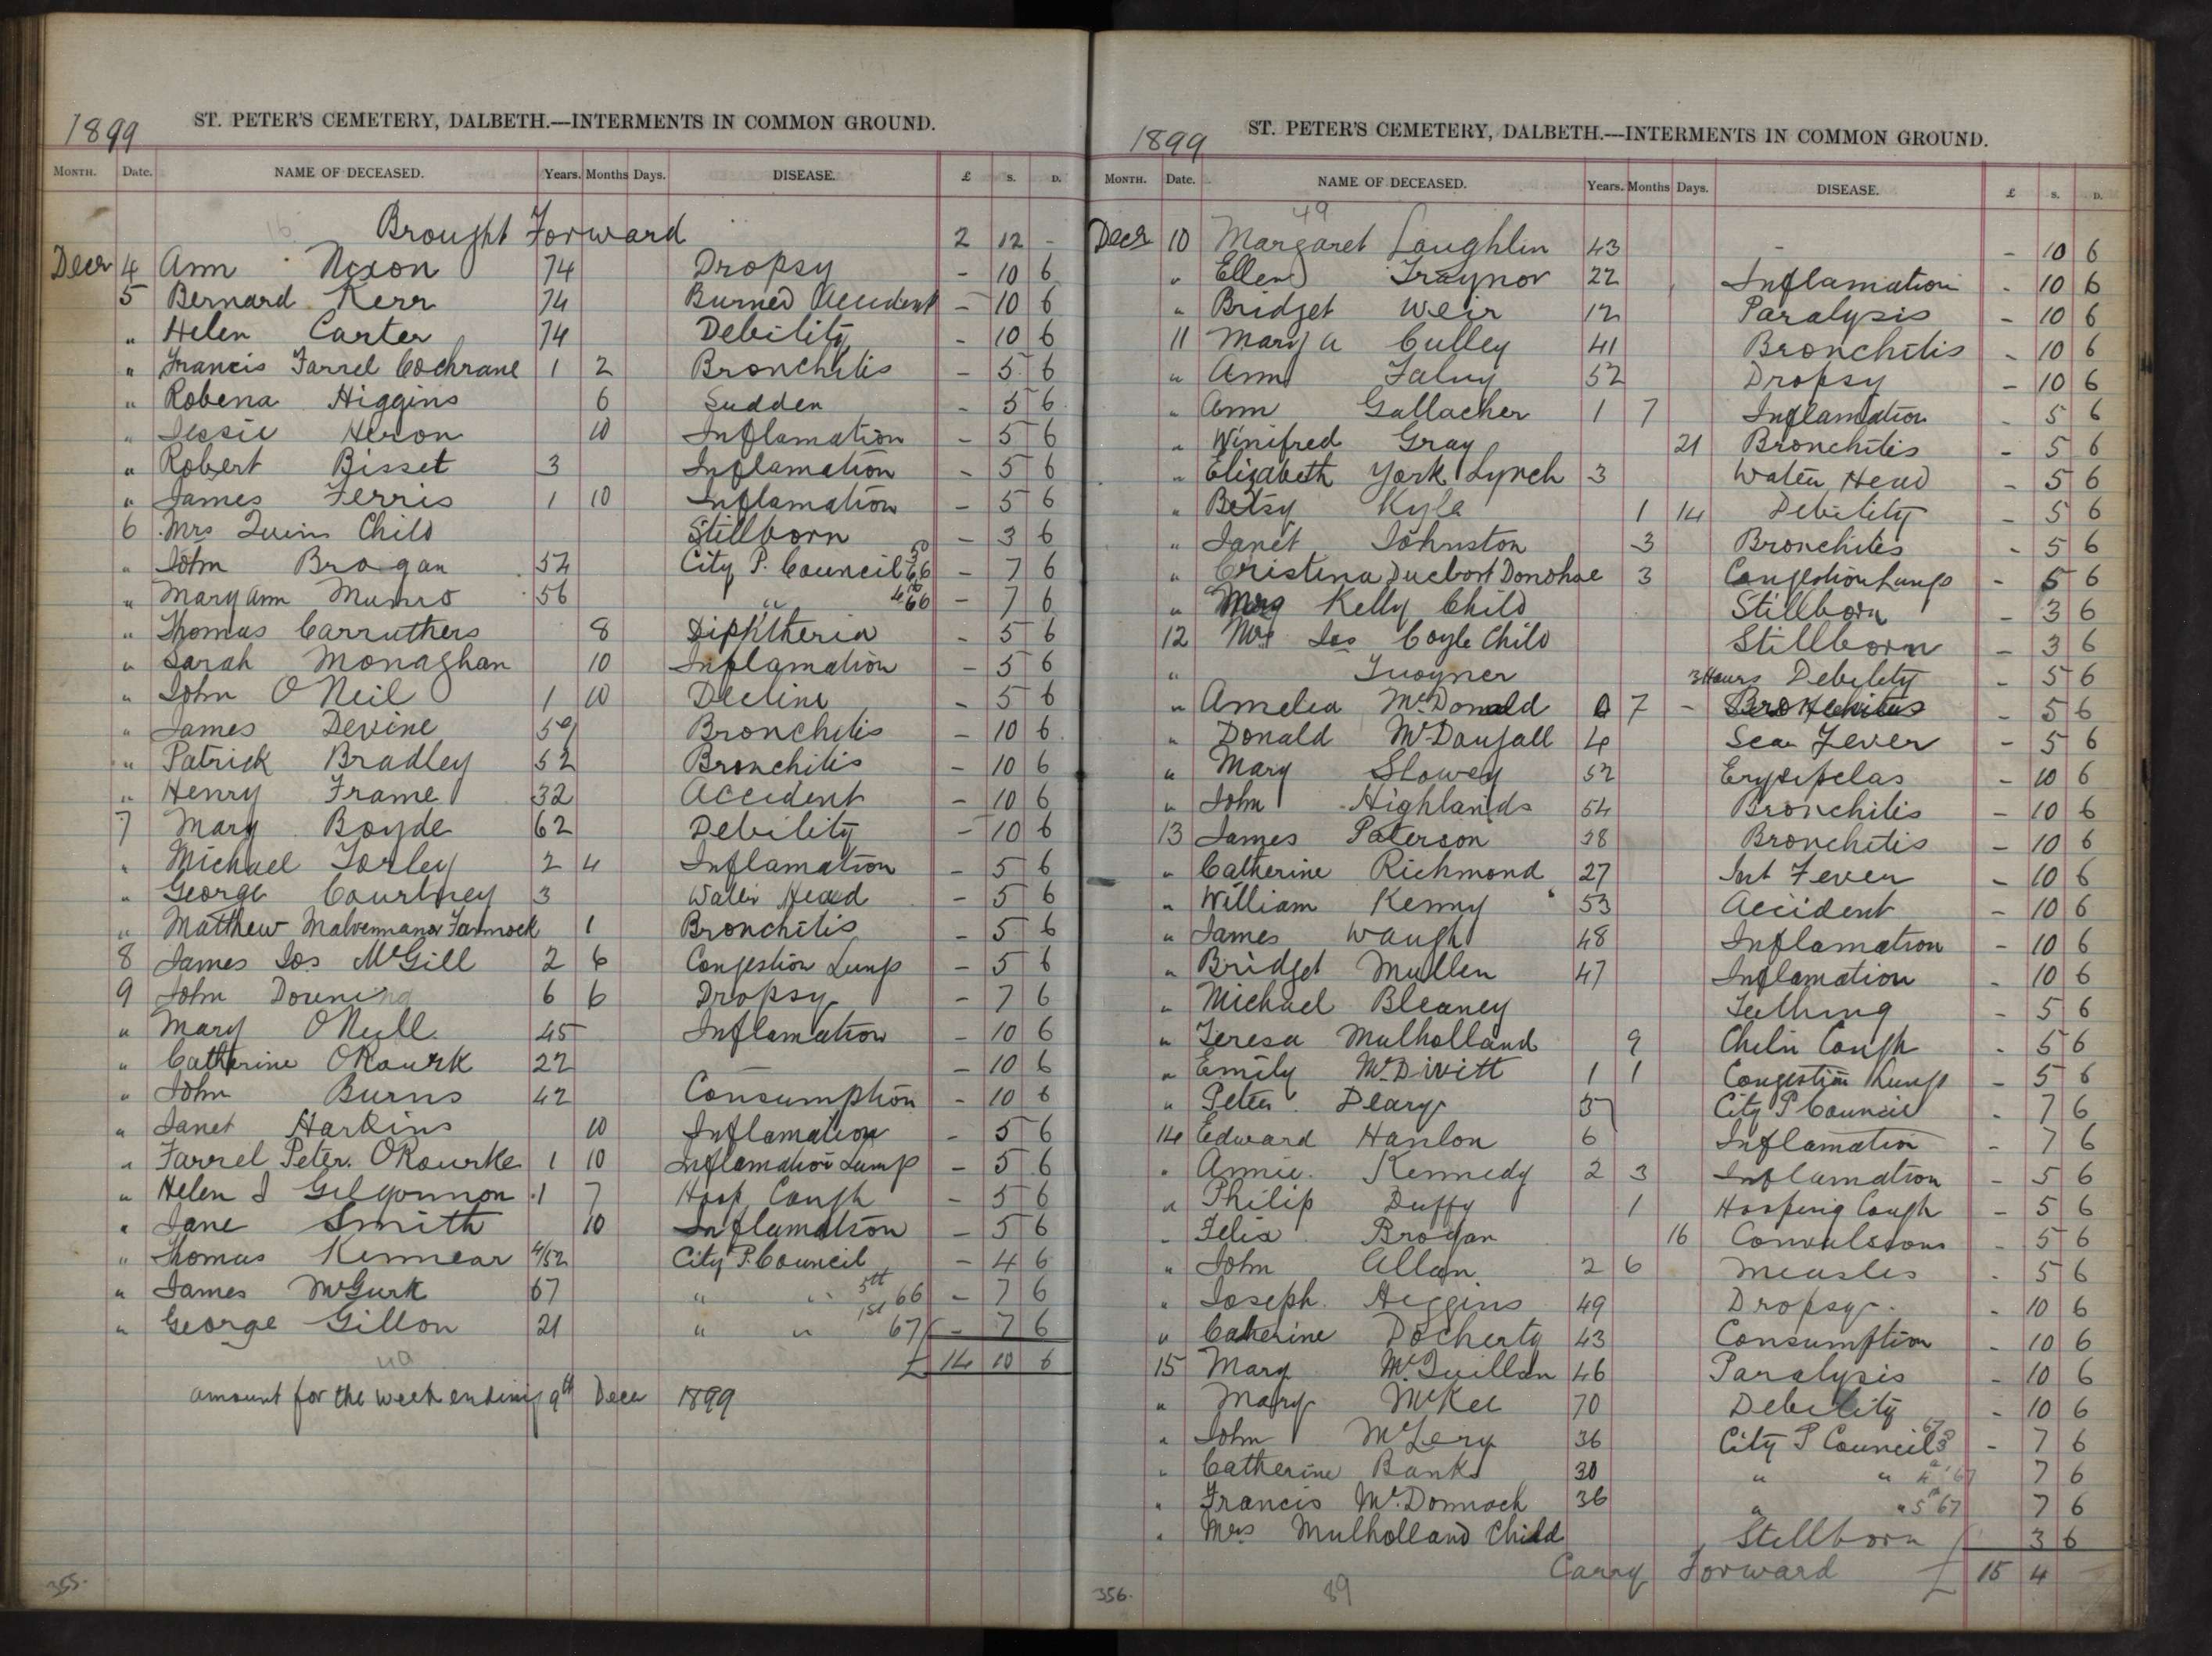 1899 ST. PETER'S CEMETERY, DALBETH.—INTERMENTS IN COMMON GROUND.
MONTH. Date. NAME OF DECEASED. Years. Months Days. DISEASE. £ S. D.
Brought Forward 2 12 -
Decr 4 Ann Nixon 74 Dropsy - 10 6
5 Bernard Kerr 74 Burned Accident - 10 6
" Helen Carter 74 Debility - 10 6
" Francis Farrel Cochrane 1 2 Bronchitis - 5 6
" Robena Higgins 6 Sudden - 5 6
" Jessie Heron 10 Inflamation - 5 6
" Robert Bisset 3 Inflamation - 5 6
" James Ferris 1 10 Inflamation - 5 6
6 Mrs Quinn Child Stillborn - 3 6
" John Brogan 52 City P. Council 66 - 7 6
" Mary Ann Munro 56 " 4th 66 - 7 6
" Thomas Carruthers 8 Diphtheria - 5 6
" Sarah Monaghan 10 Inflamation - 5 6
" John O Neil 1 10 Decline - 5 6
" James Devine 59 Bronchitis - 10 6
" Patrick Bradley 52 Bronchitis - 10 6
" Henry Frame 32 Accident - 10 6
7 Mary Boyde 62 Debility - 10 6
" Michael Torley 2 4 Inflamation - 5 6
" George Courtney 3 Water Head - 5 6
" Matthew 1 Bronchitis - 5 6
8 James Jos McGill 2 6 Congestion Lungs - 5 6
9 John Downing 6 6 Dropsy - 7 6
" Mary ONeill 45 Inflamation - 10 6
" Catherine ORourk 22 - 10 6
" John Burns 42 Consumption - 10 6
" Janet Harkins 10 Inflamation - 5 6
" Farrel Peter. ORourke 1 10 Inflamation Lungs - 5 6
" Helen J Gilgunnon 1 7 Hoop Cough - 5 6
" Jane Smith 10 Inflamation - 5 6
" Thomas Kinnear 4/52 City P. Council - 4 6
" James McGurk 67 " " 5th 66 - 7 6
" George Gillon 21 " " 1st 67 - 7 6
£ 14 10 6
amount for the week ending 9th Decr 1899
355.
1899 ST. PETER'S CEMETERY, DALBETH.—INTERMENTS IN COMMON GROUND.
MONTH. Date. NAME OF DECEASED. Years. Months Days. DISEASE. £ S. D.
49
Decr 10 Margaret Loughlin 43 - - 10 6
" Ellen Traynor 22 Inflamation - 10 6
" Bridget Weir 12 Paralysis - 10 6
11 Mary A Culley 41 Bronchitis - 10 6
" Ann 52 Dropsy - 10 6
" Ann Gallacher 1 7 Inflamation - 5 6
" Winifred Gray 21 Bronchitis - 5 6
" Elizabeth York Lynch 3 Water Head - 5 6
" Betsy Kyle 1 14 Debility - 5 6
" Janet Johnston 3 Bronchitis - 5 6
" Cristina Donohoe 3 Congestion Lungs - 5 6
" Mrs Kelly Child Stillborn - 3 6
12 Mrs Jas Coyle Child Stillborn - 3 6
" 3 Hours Debility - 5 6
" Amelia McDonald 7 - Bronchitis - 5 6
" Donald McDougall 4 Scar Fever - 5 6
" Mary Slowey 52 Erysipelas - 10 6
" John Highlands 54 Bronchitis - 10 6
13 James Paterson 38 Bronchitis - 10 6
" Catherine Richmond 27 Int Fever - 10 6
" William Kenny 53 Accident - 10 6
" James Waugh 48 Inflamation - 10 6
" Bridget Mullen 47 Inflamation - 10 6
" Michael Bleaney Teething - 5 6
" Teresa Mulholland 9 Chiln Cough - 5 6
" Emily McDivitt 1 1 Congestion Lungs - 5 6
" Peter Deary City P Council - 7 6
14 Edward Hanlon 6 Inflamation - 7 6
" Annie Kennedy 2 3 Inflamation - 5 6
" Philip Duffy 1 Hooping Cough - 5 6
" Felix Brogan 16 Convulsions - 5 6
" John Allan 2 6 Measles - 5 6
" Joseph Higgins 49 Dropsy - 10 6
" Catherine Docherty 43 Consumption - 10 6
15 Mary McQuillan 46 Paralysis - 10 6
" Mary McKee 70 Debility - 10 6
" John McLery 36 City P Council 67 3 - 7 6
" Catherine Banks 30 " " 4 67 7 6
" Francis McDonnoch 36 " " 5 67 7 6
" Mrs Mulholland Child Stillborn 3 6
Carry Forward £ 15 4
356. 89